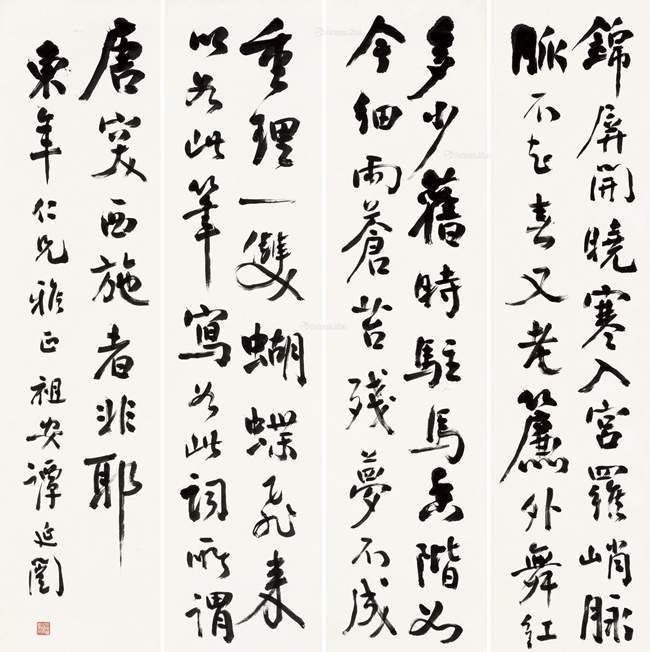 錦屏開曉寒入宮羅峭脉
脈不知春又老簾外舞紅
多少舊時駐馬香階如
今細雨蒼苔殘夢不成
重理一雙蝴蝶飛來
以若此筆寫若此詞所謂
唐突西施者非耶
東年仁兄雅正祖安譚延闓